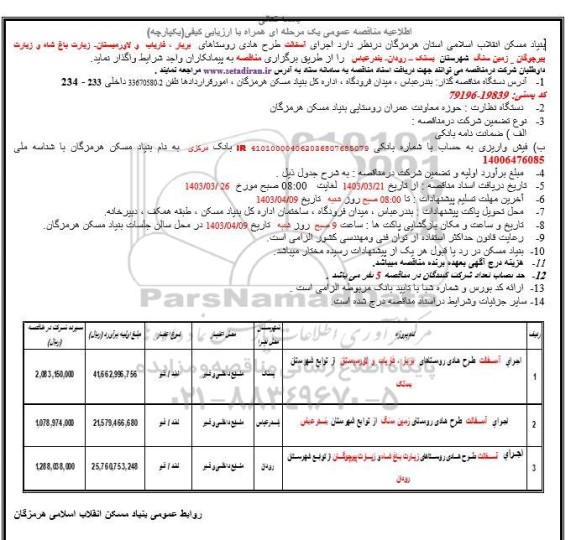 بسمه تعالی
اطلاعیه مناقصه عمومی یک مرحله ای همراه با ارزیابی کیفی(یکپارچه)
بنیاد مسکن انقلاب اسلامی استان هرمزگان درنظر دارد اجرای آسفالت طرح هادی روستاهای بربار ، فاریاب و لاورمیستان، زیارت باغ شاه و زیارت
پیرچوگان ، زمین سنگ شهرستان بستک ، رودان، بندرعباس را از طریق برگزاری مناقصه به پیمانکاران واجد شرایط واگذار نماید.
داوطلبان شرکت درمناقصه می توانند جهت دریافت اسناد مناقصه به سامانه ستاد به آدرس www.setadiran.ir مراجعه نمایند .
1- آدرس دستگاه مناقصه گذار: بندرعباس ، میدان فرودگاه ، اداره کل بنیاد مسکن هرمزگان ، امورقراردادها تلفن 2-33670580 داخلی 233 - 234
کد پستی: 19839-79196
2- دستگاه نظارت : حوزه معاونت عمران روستایی بنیاد مسکن هرمزگان
3- نوع تضمین شرکت درمناقصه :
الف ) ضمانت نامه بانکی
ب) فیش واریزی به حساب با شماره بانکی IR 410100004062036807685079 بانک مرکزی به نام بنیاد مسکن هرمزگان با شناسه ملی
14006476085
4- مبلغ برآورد اولیه و تضمین شرکت درمناقصه : به شرح جدول ذیل .
5- تاریخ دریافت اسناد مناقصه : از تاریخ 1403/03/21 لغایت 08:00 صبح مورخ 26 /1403/03
6- آخرین مهلت تسلیم پیشنهادات : تا 08:00 صبح روز شنبه تاریخ 1403/04/09
7- محل تحویل پاکت پیشنهادات : بندرعباس ، میدان فرودگاه ، ساختمان اداره کل بنیاد مسکن ، طبقه همکف ، دبیرخانه.
8- تاریخ و ساعت و مکان بازگشایی پاکت ها : ساعت 9 صبح روز شنبه تاریخ 1403/04/09 در محل سالن جلسات بنیاد مسکن هرمزگان.
9- رعایت قانون حداکثر استفاده از توان فنی ومهندسی کشور الزامی است.
10- بنیاد مسکن در رد یا قبول هر یک از پیشنهادات رسیده مختار میباشد.
11- هزینه درج آگهی بعهده برنده مناقصه میباشد.
12- حد نصاب تعداد شرکت کنندگان در مناقصه 5 نفر می باشد .
13- ارائه کد بورس و شماره شبا با تایید بانک مربوطه الزامی است .
14- سایر جزئیات وشرایط دراسناد مناقصه درج شده است
ردیف نام پروژه شهرستان محل اجرا محل اعتبار نوع اعتبار مبلغ اولیه برآورد (ریال) سپرده شرکت در مناقصه (ریال)
1 اجرای آسفالت طرح هادی روستاهای بربار ، فاریاب و لاورمیستان از توابع شهرستان بستک بستک منابع داخلی و قیر نقد / قیر 41,662,996,756 2,083,150,000
2 اجرای آسفالت طرح هادی روستای زمین سنگ از توابع شهرستان بندرعباس بندرعباس منابع داخلی و قیر نقد / قیر 21,579,466,680 1,078,974,000
3 اجرای آسفالت طرح هادی روستاهای زیارت باغ شاه و زیارت پیرچوگان از توابع شهرستان رودان رودان منابع داخلی و قیر نقد / قیر 25,760,753,248 1,288,038,000
روابط عمومی بنیاد مسکن انقلاب اسلامی هرمزگان
ParsNamadData
۰۲۱-۸۸۳۴۹۶۷۰-۵